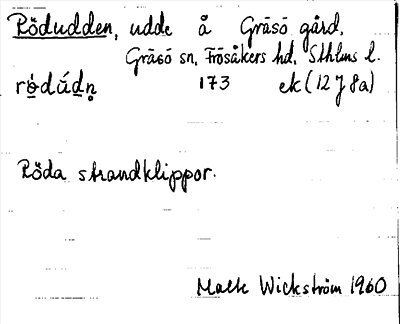 Rödudden, udde å Gräsö gård,
Gräsö sn, Frösåkers hd, Sthlms l.
rö̀dúdn̥ 173 ek (12 J 8a)
Röda strandklippor.
Malte Wickström 1960